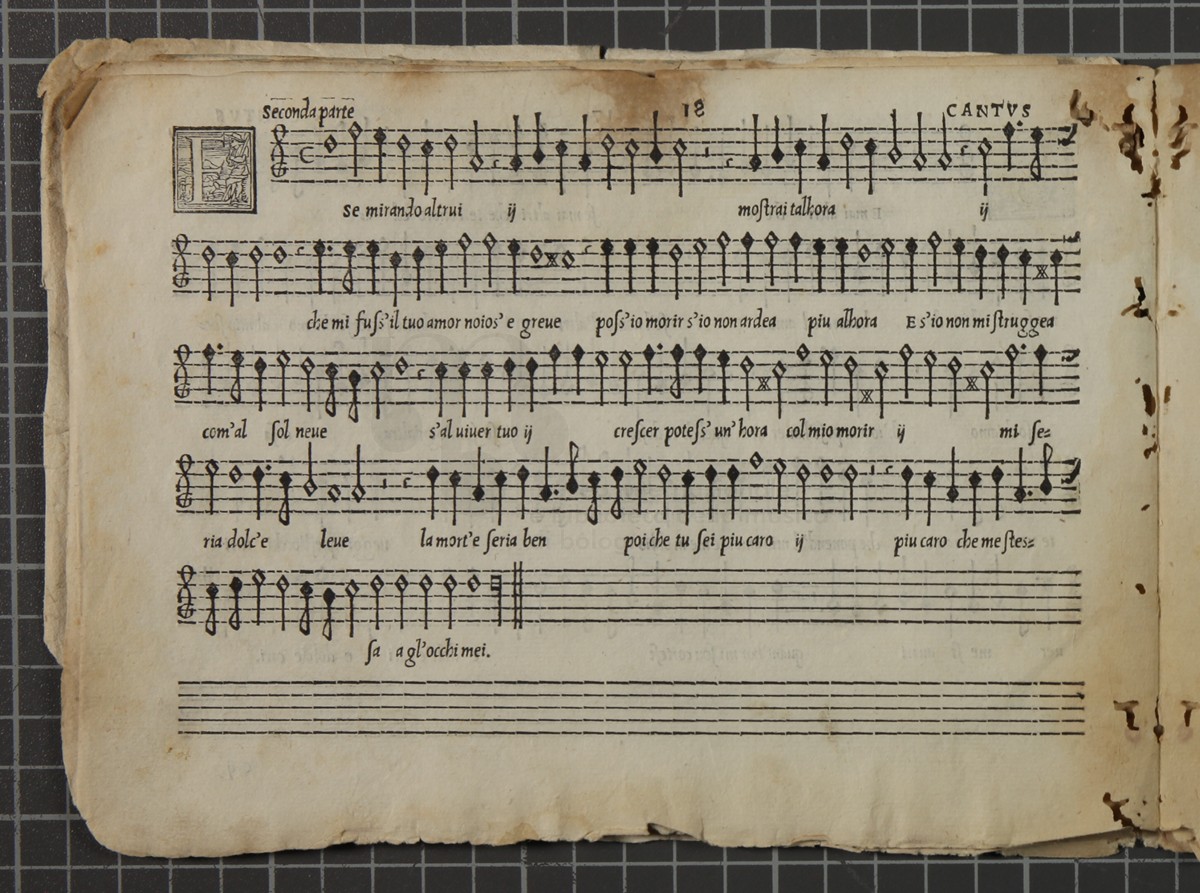 Seconda parte 18 CANTVS
E se mirando altrui ij mostrai talhora ij
che mi fuss'il tuo amor noios' e greue poss'io morir s'io non ardea piu alhora E s'io non mi struggea
com'al sol neue s'al uiuer tuo ij crescer potess' un'hora col mio morir ij mi se=
ria dolc'e leue la mort'e seria ben poi che tu sei piu caro ij piu caro che me stes=
sa a gl'occhi mei.